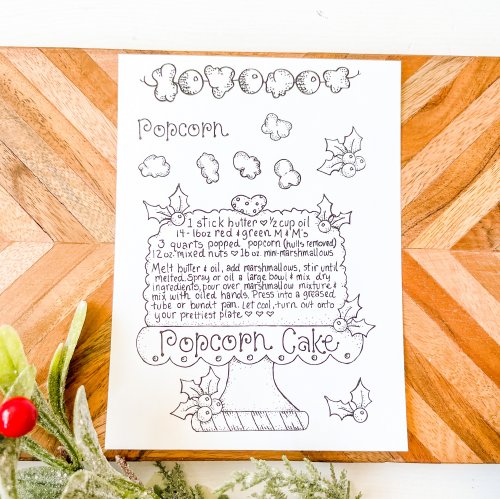 Popcorn
1 stick butter ♡ 1/2 cup oil
14-16oz red & green M & M's
3 quarts popped popcorn (hulls removed)
12 oz. mixed nuts ♡ 16 oz. mini-marshmallows
Melt butter & oil, add marshmallows, stir until
melted. Spray or oil a large bowl & mix dry
ingredients, pour over marshmallow mixture &
mix with oiled hands. Press into a greased
tube or bundt pan. Let cool, turn out onto
your prettiest plate ♡ ♡ ♡
Popcorn Cake